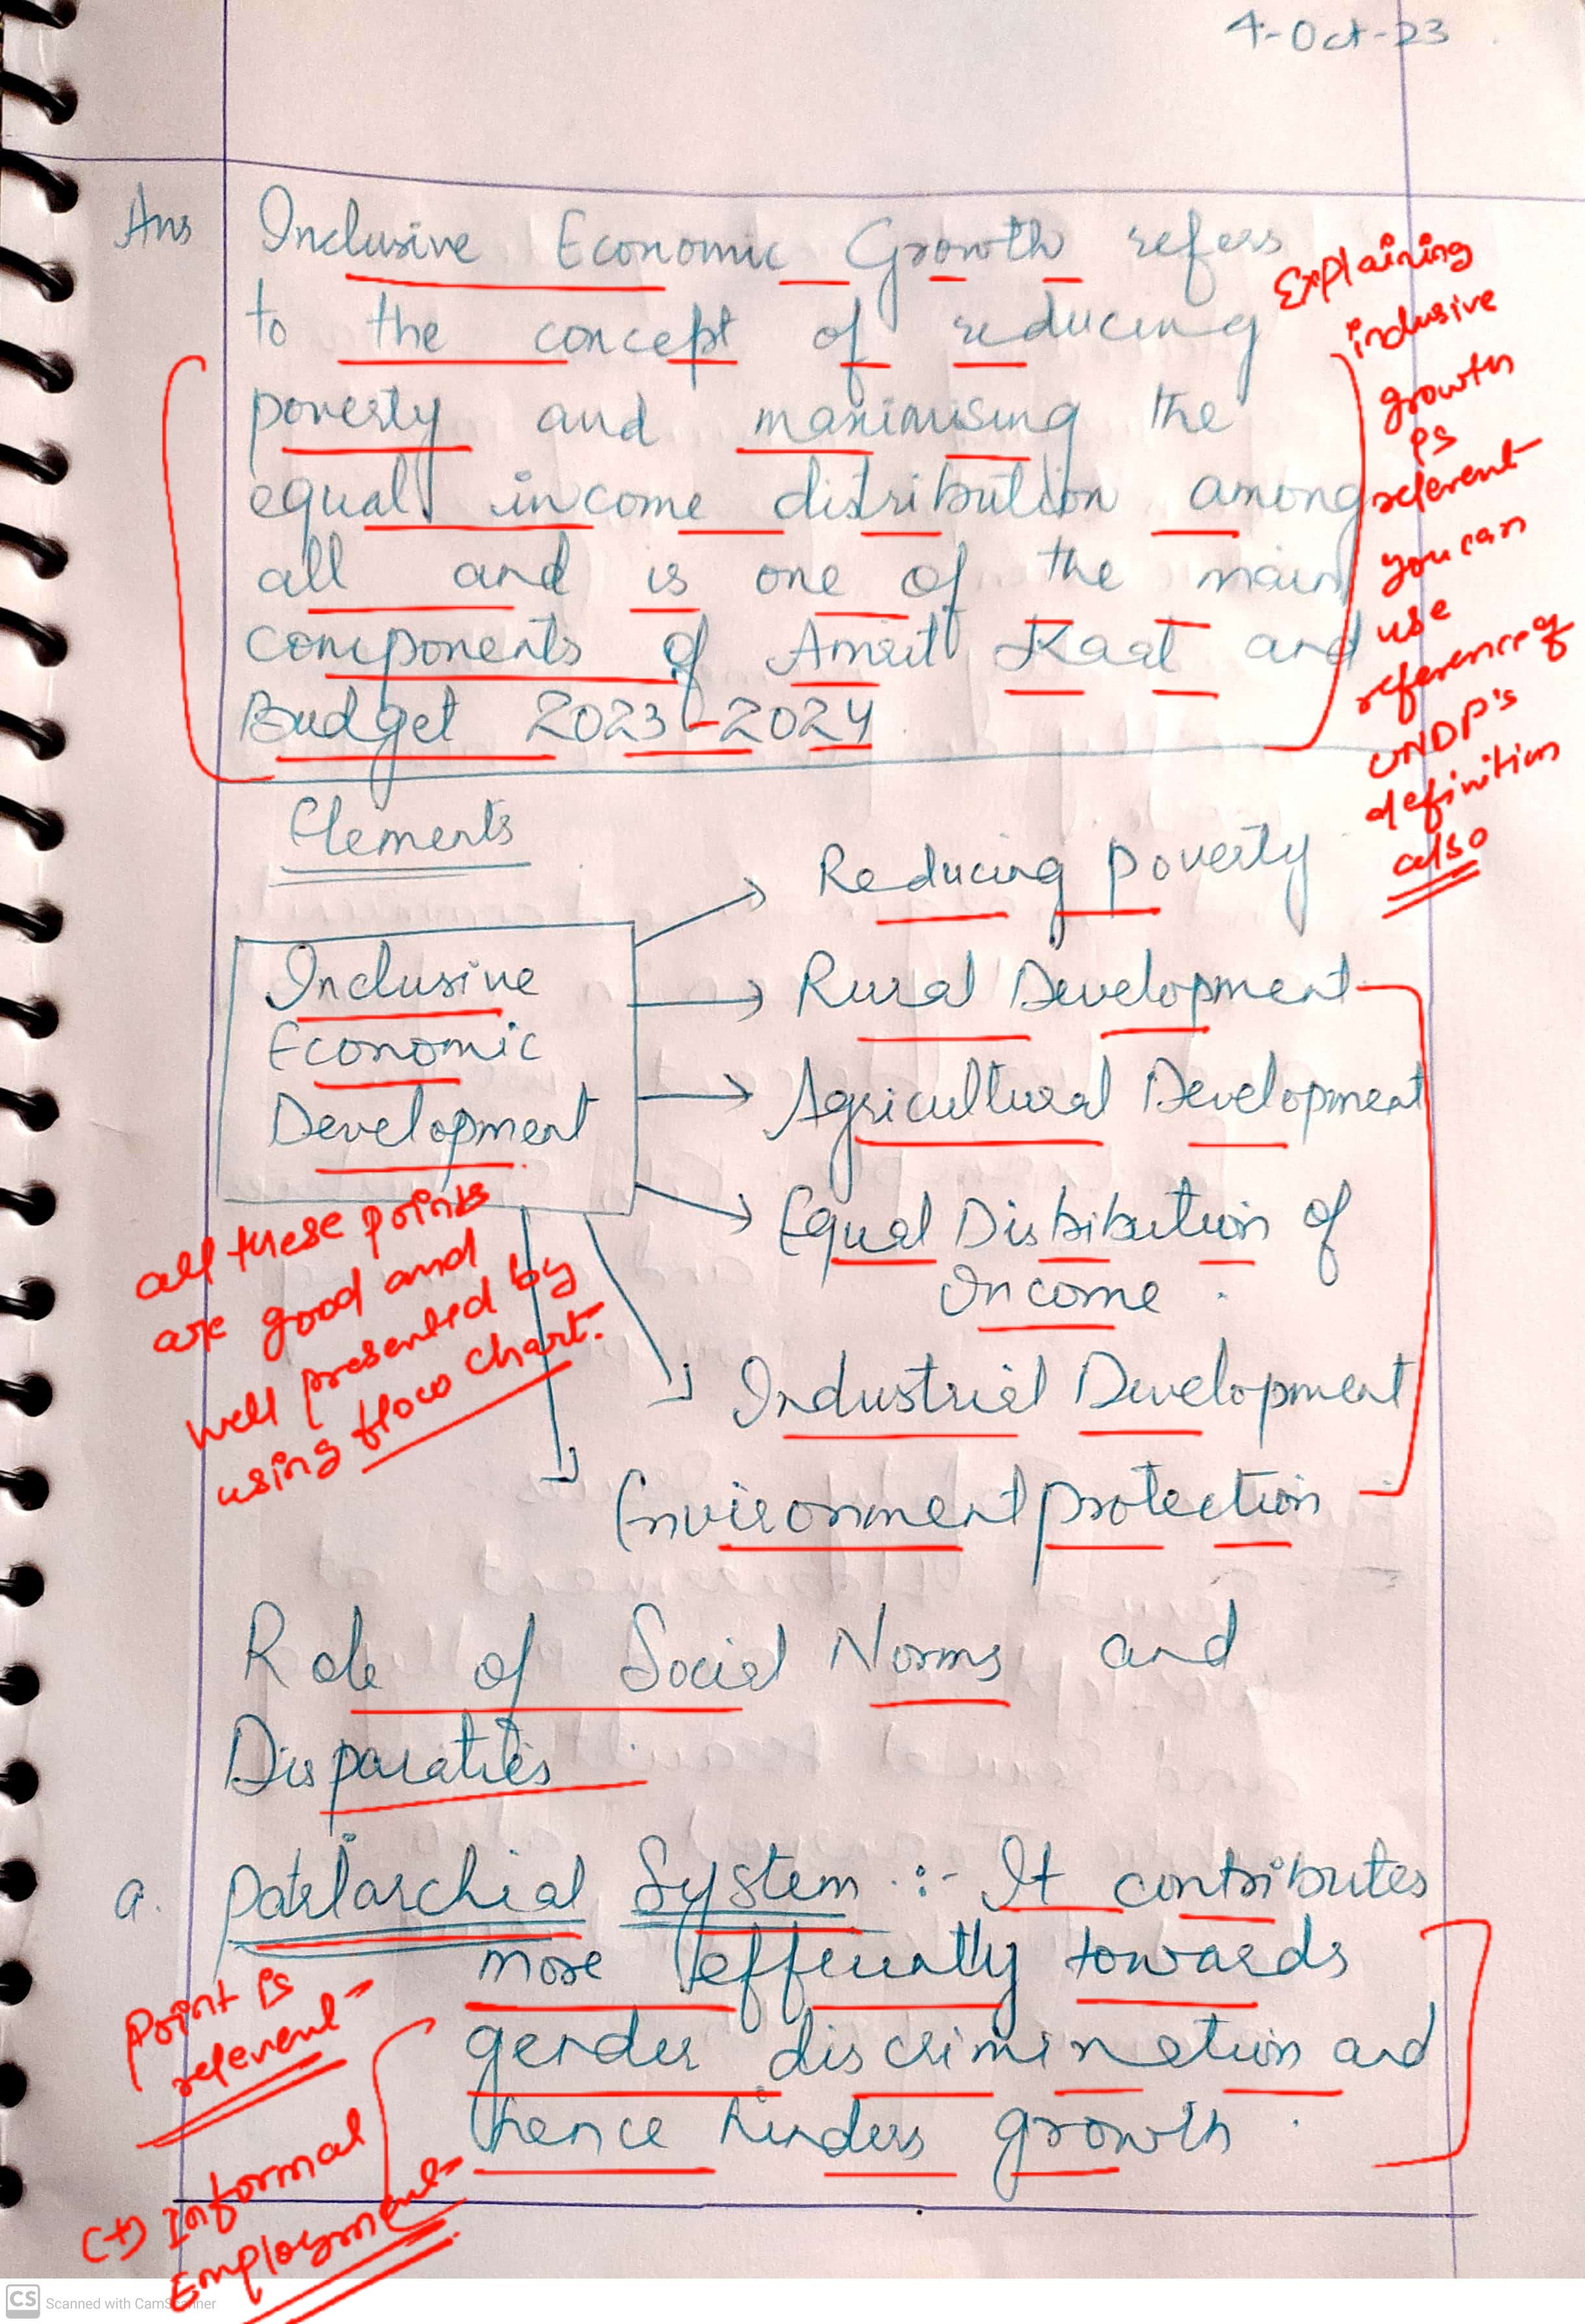 4-Oct-23
Ans Inclusive Economic Growth refers
to the concept of reducing
poverty and maximising the
equal income distribution among
all and is one of the main
components of Amrit Kaal and
Budget 2023-2024
Explaining
inclusive
growth
is
relevent
you can
use
reference of
UNDP's
definition
also
Elements
Inclusive
Economic
Development
Reducing poverty
Rural Development
Agricultural Development
Equal Distribution of
Income.
Industrial Development
Environment protection
all these points
are good and
well presented by
using flow chart.
Role of Social Norms and
Disparaties
a. Patriarchial System :- It contributes
more efficiently towards
gender discrimination and
hence hinders growth.
Point is
relevent
(+) Informal
Employment
CS Scanned with CamScanner